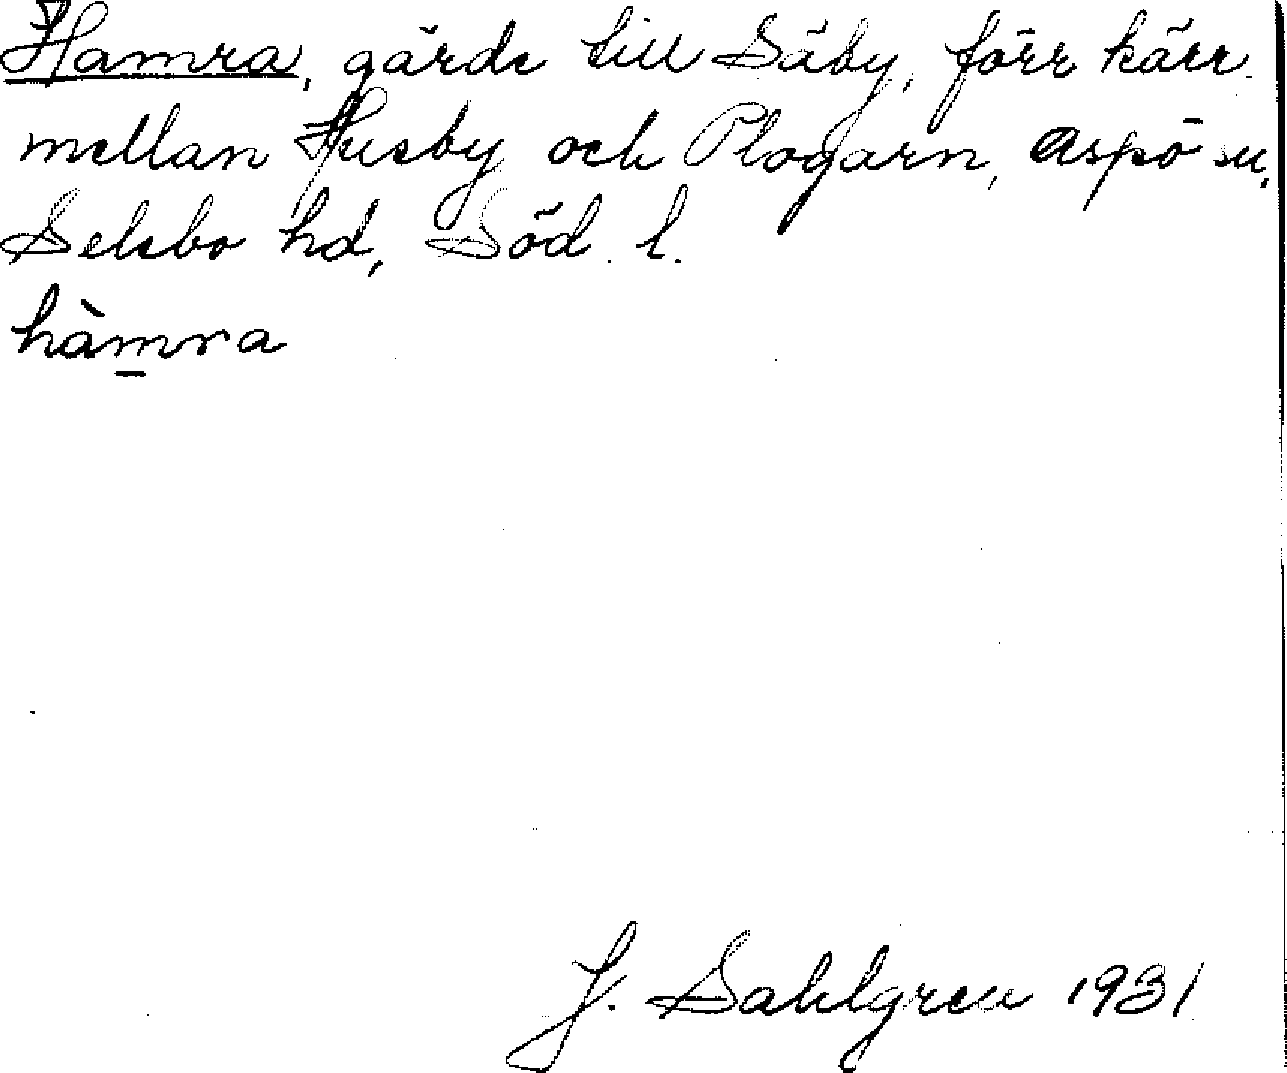 Hamra, gärde till Säby, förr kärr
mellan Husby och Plogarn, Aspö sn,
Selebo hd, Söd. l.
hàm̲ra
J. Sahlgren 1931